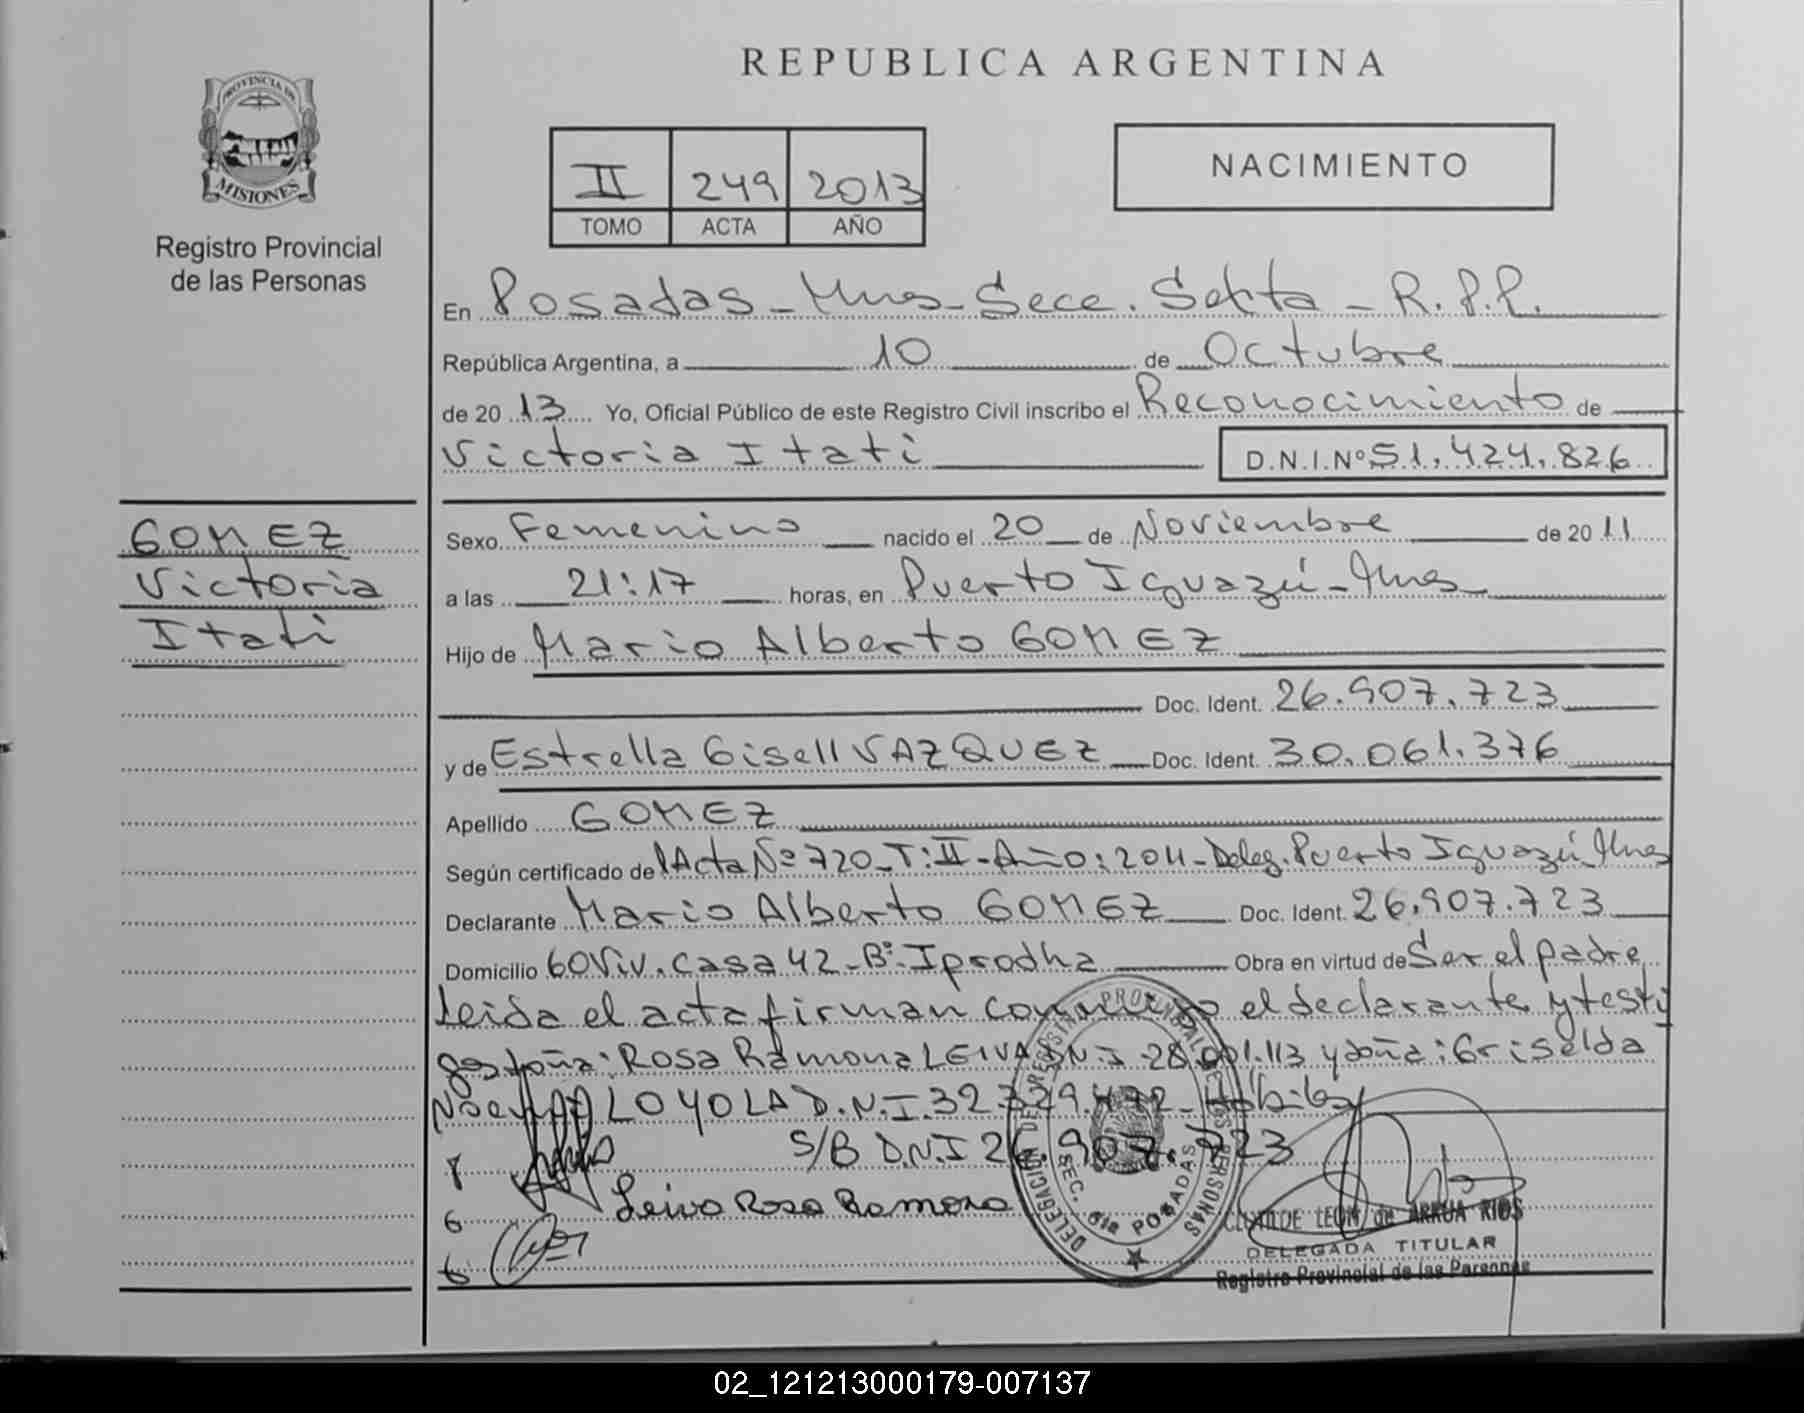 REPUBLICA ARGENTINA
PROVINCIA DE
MISIONES
Registro Provincial
de las Personas
II 249 2013
TOMO ACTA AÑO
NACIMIENTO
En Posadas - Mnes - Secc. Sexta - R.P.P.
República Argentina, a 10 de Octubre
de 2013 Yo, Oficial Público de este Registro Civil inscribo el Reconocimiento de
Victoria Itati
D.N.I.Nº 51.424.826
GOMEZ
Victoria
Itati
Sexo Femenino nacido el 20 de Noviembre de 2011
a las 21:17 horas, en Puerto Iguazú - Mnes
Hijo de Mario Alberto GOMEZ
Doc. Ident. 26.907.723
y de Estrella Gisell VAZQUEZ Doc. Ident. 30.061.376
Apellido GOMEZ
Según certificado de Acta Nº 720 - T: II - Año: 2011 - Deleg. Puerto Iguazú - Mnes
Declarante Mario Alberto GOMEZ Doc. Ident. 26.907.723
Domicilio 60 Viv. Casa 42 - Bº: Iprodha Obra en virtud de Ser el padre
Leida el acta firman conmigo el declarante y testi
gos doña: Rosa Ramona LEIVA D.N.I. 28.001.113 y doña: Griselda
LOYOLA D.N.I. 32.729.472
S/B D.N.I 26.907.723
Leiva Rosa Ramona
DELEGACION DEL REGISTRO PROVINCIAL DE LAS PERSONAS
SEC. 6ta POSADAS
LEON de ARRUA RIOS
DELEGADA TITULAR
Registro Provincial de las Personas
02_121213000179-007137